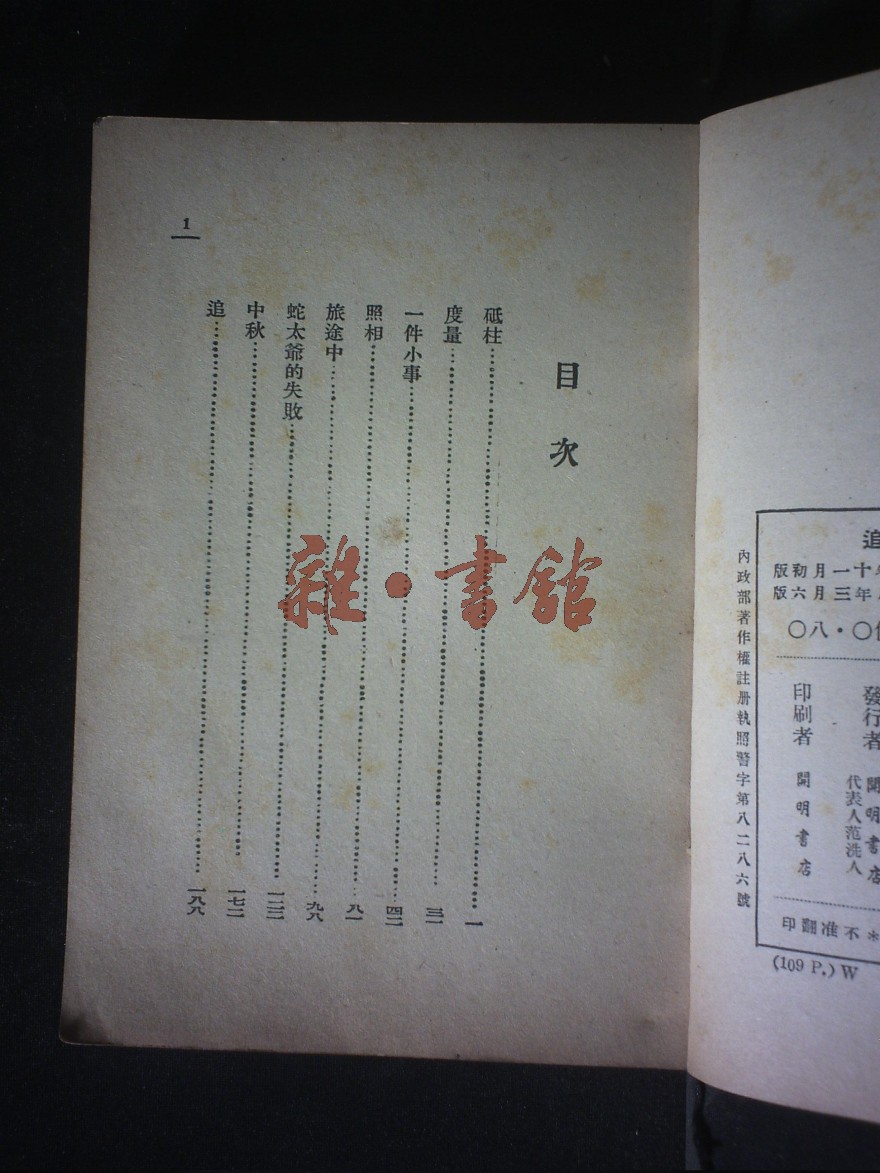 追
十一月初版
年三月六版
〇・八〇
發行者 開明書店
代表人范洗人
印刷者 開明書店
＊不准翻印
(109 P.) W
內政部著作權註册執照警字第八二八六號
目次
砥柱……一
度量……
一件小事……四二
照相……八一
旅途中……九八
蛇太爺的失敗……
中秋……一七二
追……一八八
1
雜・書館